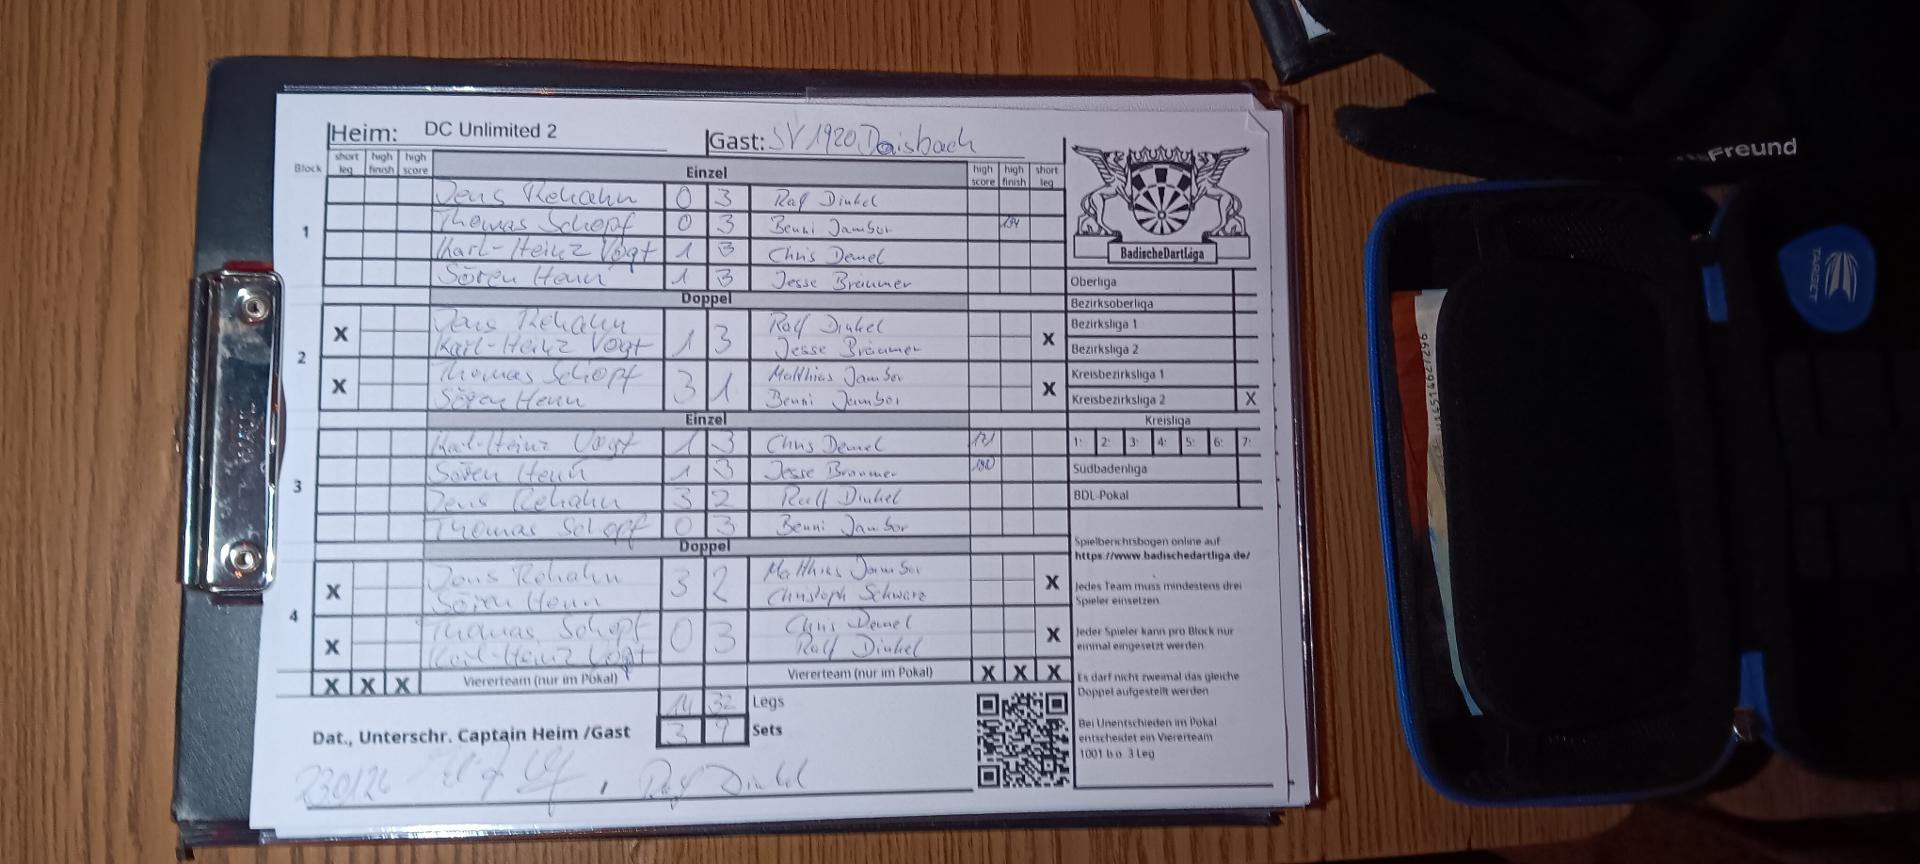 Heim: DC Unlimited 2 Gast: SV 1920 Daisbach
Block short leg high finish high score Einzel high score high finish short leg
1
Jens Rehahn 0 3 Ralf Dinkel
Thomas Schopf 0 3 Benni Jambor 134
Karl-Heinz Vogt 1 3 Chris Demel
Sören Henn 1 3 Jesse Bräumer
Doppel
2
X Jens Rehahn 1 3 Ralf Dinkel X
Karl-Heinz Vogt Jesse Bräumer
X Thomas Schopf 3 1 Matthias Jambor X
Sören Henn Benni Jambor
Einzel
3
Karl-Heinz Vogt 1 3 Chris Demel 171
Sören Henn 1 3 Jesse Bräumer 180
Jens Rehahn 3 2 Ralf Dinkel
Thomas Schopf 0 3 Benni Jambor
Doppel
4
X Jens Rehahn 3 2 Matthias Jambor X
Sören Henn Christoph Schwarz
X Thomas Schopf 0 3 Chris Demel X
Karl-Heinz Vogt Ralf Dinkel
X X X Viererteam (nur im Pokal) Viererteam (nur im Pokal) X X X
14 32 Legs
3 9 Sets
Dat., Unterschr. Captain Heim /Gast
230126 , Ralf Dinkel
BadischeDartLiga
Oberliga
Bezirksoberliga
Bezirksliga 1
Bezirksliga 2
Kreisbezirksliga 1
Kreisbezirksliga 2 X
Kreisliga
1: 2: 3: 4: 5: 6: 7:
Südbadenliga
BDL-Pokal
Spielberichtsbogen online auf
https://www.badischedartliga.de/
Jedes Team muss mindestens drei
Spieler einsetzen
Jeder Spieler kann pro Block nur
einmal eingesetzt werden
Es darf nicht zweimal das gleiche
Doppel aufgestellt werden
Bei Unentschieden im Pokal
entscheidet ein Viererteam
1001 b.o. 3 Leg
Freund
TARGET